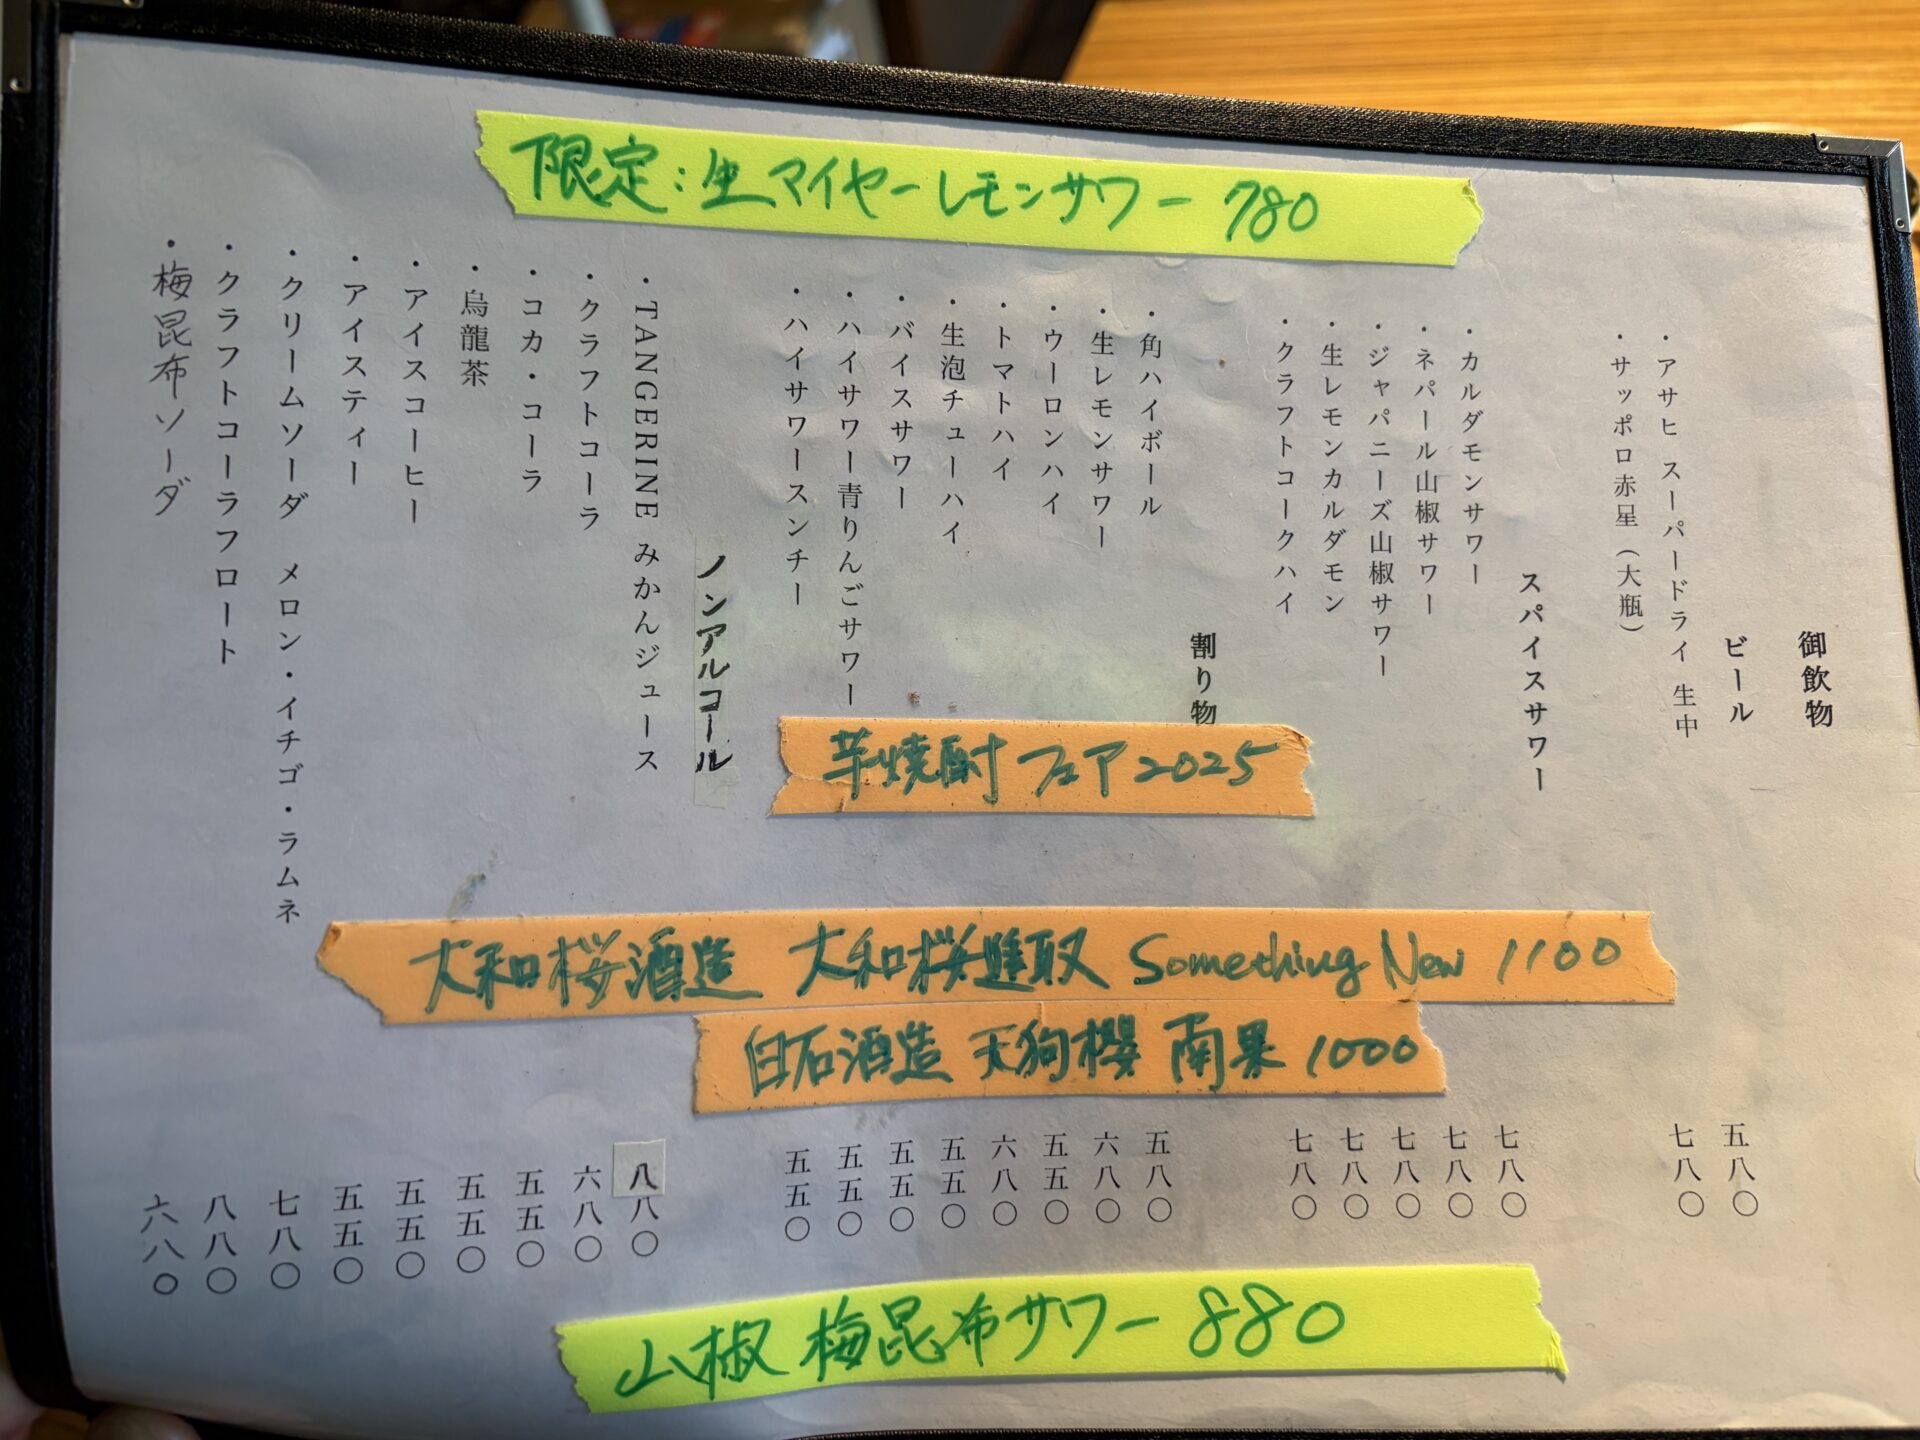 限定:生マイヤーレモンサワー 780
御飲物
ビール
・アサヒ スーパードライ 生中 五八〇
・サッポロ赤星（大瓶） 七八〇
スパイスサワー
・カルダモンサワー 七八〇
・ネパール山椒サワー 七八〇
・ジャパニーズ山椒サワー 七八〇
・生レモンカルダモン 七八〇
・クラフトコークハイ 七八〇
割り物
・角ハイボール 五八〇
・生レモンサワー 六八〇
・ウーロンハイ 五五〇
・トマトハイ 六八〇
・生泡チューハイ 五五〇
・バイスサワー 五五〇
・ハイサワー青りんごサワー 五五〇
・ハイサワースンチー 五五〇
ノンアルコール
・TANGERINE みかんジュース 八八〇
・クラフトコーラ 六八〇
・コカ・コーラ 五五〇
・烏龍茶 五五〇
・アイスコーヒー 五五〇
・アイスティー 五五〇
・クリームソーダ メロン・イチゴ・ラムネ 七八〇
・クラフトコーラフロート 八八〇
・梅昆布ソーダ 六八〇
芋焼酎フェア2025
大和桜酒造 大和桜進取 Something New 1100
白石酒造 天狗櫻 南果 1000
山椒 梅昆布サワー 880